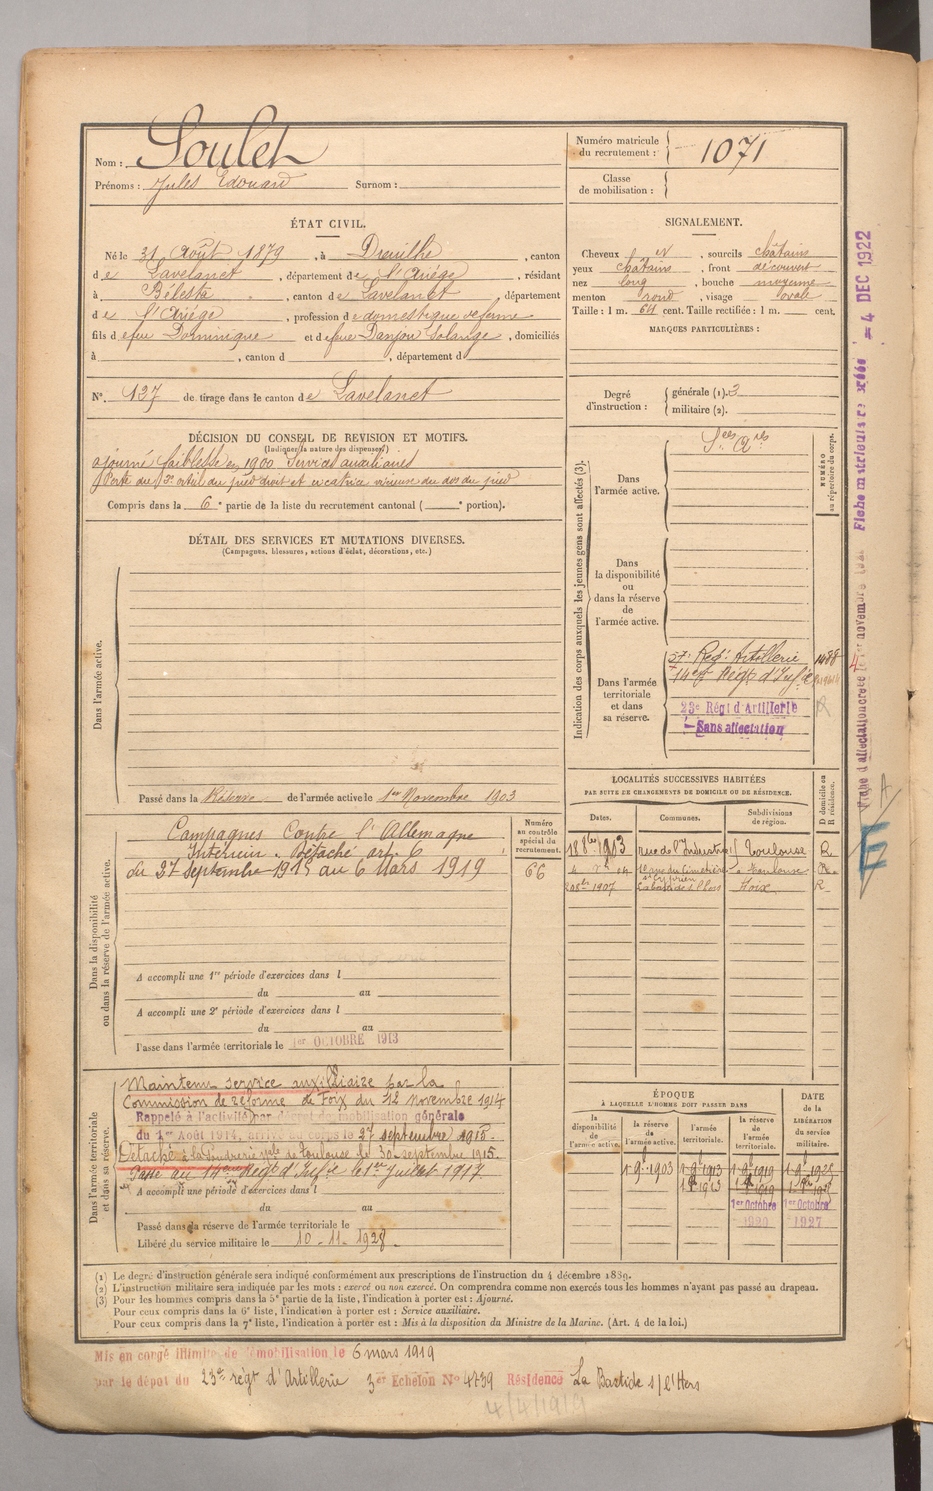 Nom : Soulet
Prénoms : Jules Edouard Surnom :
Numéro matricule du recrutement : 1071
Classe de mobilisation :
ÉTAT CIVIL.
Né le 31 Août 1879, à Dreuilhe, canton
de Lavelanet, département de l'Ariége, résidant
à Bélesta, canton de Lavelanet, département
de l'Ariége, profession de domestique de ferme
fils de feu Dominique et de feue Danjou Solange, domiciliés
à , canton d , département d
N°. 127 de tirage dans le canton de Lavelanet
SIGNALEMENT.
Cheveux et , sourcils châtains
yeux châtains, front découvert
nez long, bouche moyenne
menton rond, visage ovale
Taille : 1 m. 64 cent. Taille rectifiée : 1 m. cent.
MARQUES PARTICULIÈRES :
Degré d'instruction : générale (1). 3
militaire (2).
DÉCISION DU CONSEIL DE REVISION ET MOTIFS.
(Indiquer la nature des dispenses.)
ajourné faiblesse en 1900 Services auxiliaires
Perte du orteil du pied droit et cicatrice du dos du pied
Compris dans la 6e partie de la liste du recrutement cantonal ( e portion).
DÉTAIL DES SERVICES ET MUTATIONS DIVERSES.
(Campagnes, blessures, actions d'éclat, décorations, etc.)
Dans l'armée active.
Passé dans la Réserve de l'armée active le 1er Novembre 1903
Indication des corps auxquels les jeunes gens sont affectés (3).
NUMÉRO au répertoire du corps.
Dans l'armée active.
Dans la disponibilité ou dans la réserve de l'armée active.
Dans l'armée territoriale et dans sa réserve.
Régt Artillerie
14e Régt d'Infie
23e Régt d'Artillerie
Sans affectation
Dans la disponibilité ou dans la réserve de l'armée active.
Campagnes Contre l'Allemagne
Intérieur. Détaché art. 6
du 27 septembre 1915 au 6 Mars 1919
Numéro au contrôle spécial du recrutement.
66
A accompli une 1re période d'exercices dans l
du au
A accompli une 2e période d'exercices dans l
du au
Passé dans l'armée territoriale le 1er OCTOBRE 1913
LOCALITÉS SUCCESSIVES HABITÉES
PAR SUITE DE CHANGEMENTS DE DOMICILE OU DE RÉSIDENCE.
Dates. Communes. Subdivisions de région. D domicile ou R résidence.
1903 rue de l'Industrie Toulouse R
rue du Cimetière St Cyprien Toulouse R.
1907 Foix R
Dans l'armée territoriale et dans sa réserve.
Maintenu service auxiliaire par la
Commission de réforme de Foix du 12 novembre 1914
Rappelé à l'activité par décret de mobilisation générale
du 1er Août 1914, arrivé au corps le 27 septembre 1915.
Détaché à la Poudrerie nale de Toulouse le 30 septembre 1915.
Passé au 14eme Régt d'Infie le 1er Juillet 1917
A accompli une période d'exercices dans l
du au
Passé dans la réserve de l'armée territoriale le
Libéré du service militaire le 10-11-1928.
ÉPOQUE
A LAQUELLE L'HOMME DOIT PASSER DANS
la disponibilité de l'armée active. la réserve de l'armée active. l'armée territoriale. la réserve de l'armée territoriale. DATE de la LIBÉRATION du service militaire.
1903 1913 1919
1913 1919
1er Octobre 1er Octobre
1920 1927
(1) Le degré d'instruction générale sera indiqué conformément aux prescriptions de l'instruction du 4 décembre 1889.
(2) L'instruction militaire sera indiquée par les mots : exercé ou non exercé. On comprendra comme non exercés tous les hommes n'ayant pas passé au drapeau.
(3) Pour les hommes compris dans la 5e partie de la liste, l'indication à porter est : Ajourné.
Pour ceux compris dans la 6e liste, l'indication à porter est : Service auxiliaire.
Pour ceux compris dans la 7e liste, l'indication à porter est : Mis à la disposition du Ministre de la Marine. (Art. 4 de la loi.)
Mis en congé illimité de démobilisation le 6 mars 1919
par le dépôt du 23e régt d'Artillerie 3er Echelon N° 4739 Résidence La Bastide s/ l'Hers
4/4/1919
Fiche matriculaire créée = 4 DEC 1922